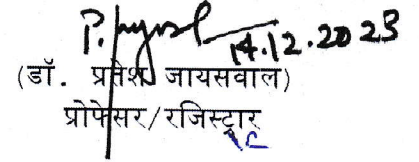 14.12.2023
(डॉ. प्रतेश जायसवाल)
प्रोफेसर/रजिस्ट्रार